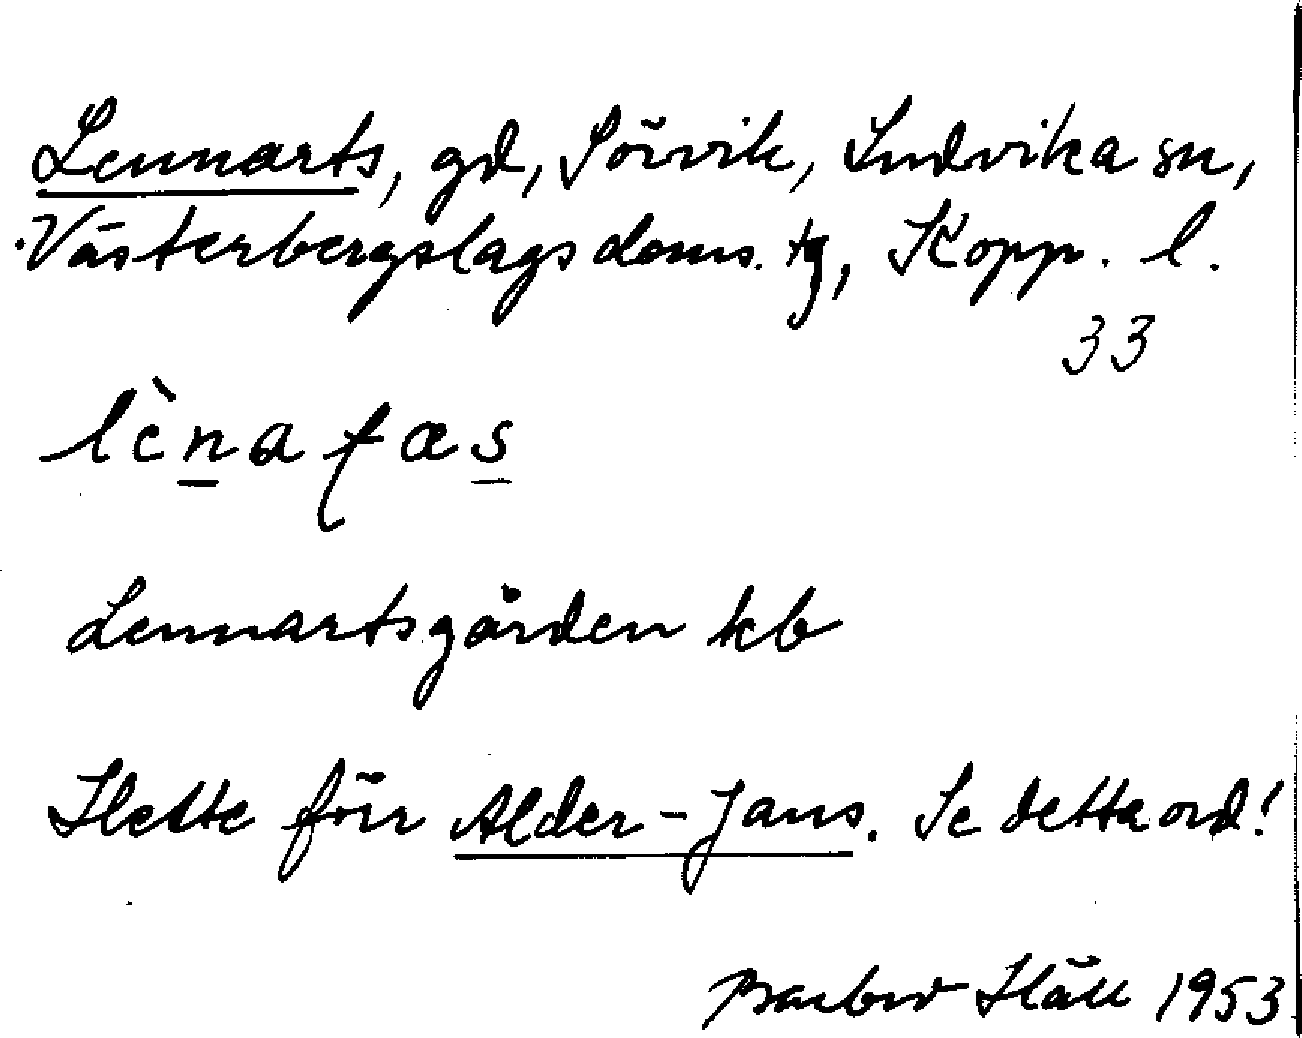 Lennarts, gd, Sörvik, Ludvika sn,
Västerbergslags doms. tg, Kopp. l.
33
lènaṭas
Lennartsgården kb
Hette förr Alder-Jans. Se detta ord!
Barbro Häll 1953